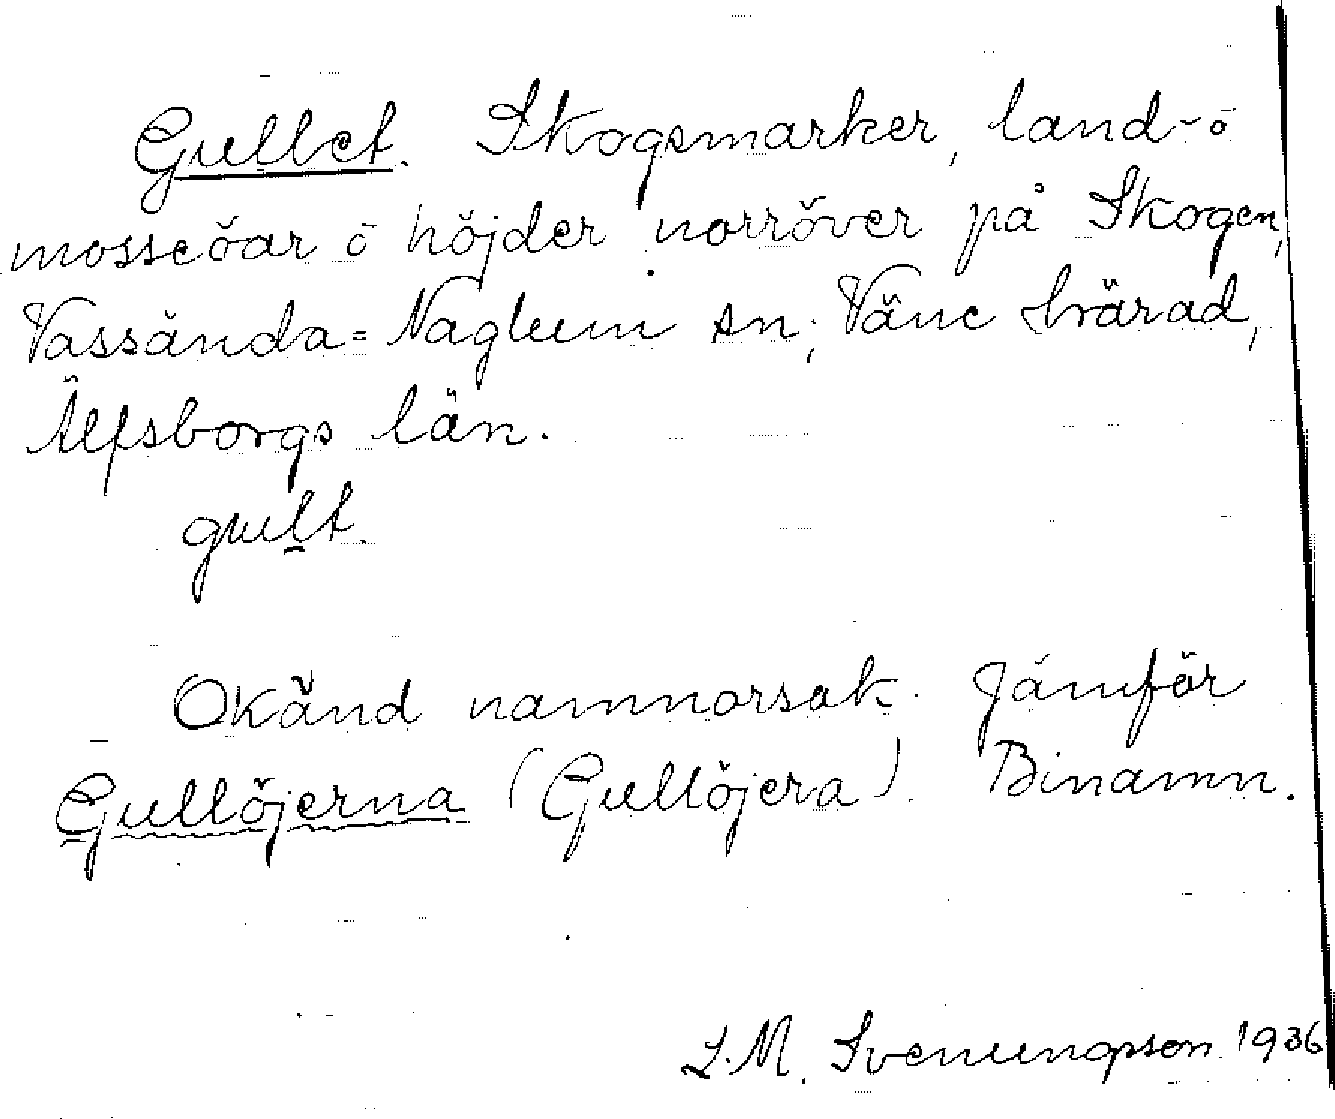 Gullet. Skogsmarker, land- ō
mosseöar ō höjder norröver på Skogen,
Vassända=Naglum sn, Väne härad,
Älfsborgs län.
gult.
Okänd namnorsak. Jämför
Gullöjerna (Gullöjera). Binamn.
L.M. Svenungsson 1936